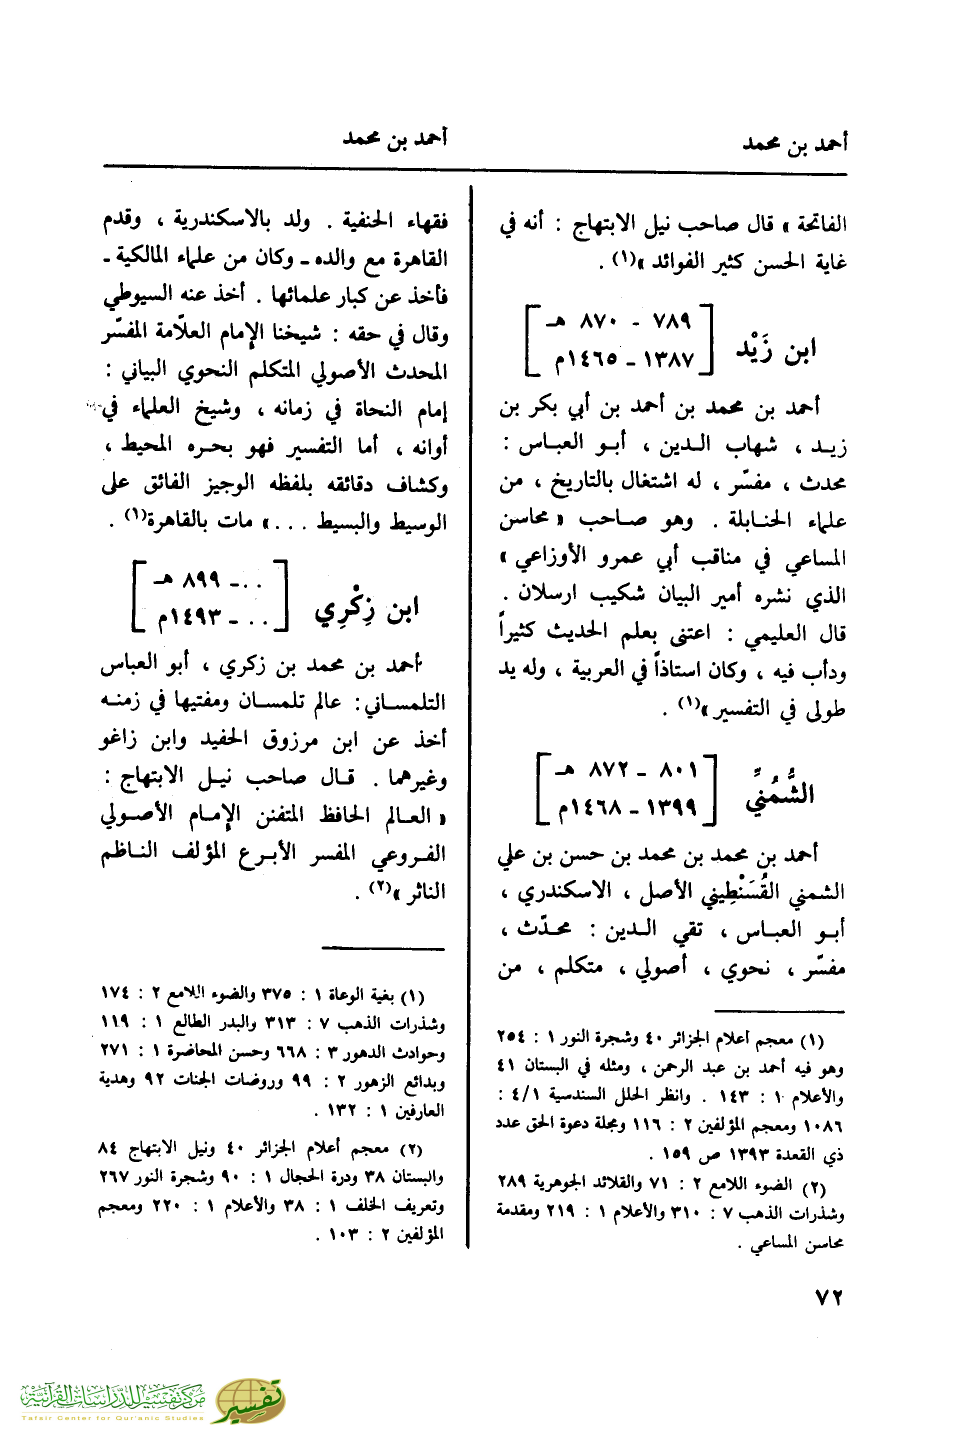 أحمد بن محمد
أحمد بن محمد
الفاتحة » قال صاحب نيل الابتهاج : أنه في
غاية الحسن كثير الفوائد »(١) .
ابن زَيْد
[ ٧٨٩ - ٨٧٠ هـ
١٣٨٧ - ١٤٦٥م ]
أحمد بن محمد بن أحمد بن أبي بكر بن
زيد ، شهاب الدين ، أبو العباس :
محدث ، مفسّر ، له اشتغال بالتاريخ ، من
علماء الحنابلة . وهو صاحب « محاسن
المساعي في مناقب أبي عمرو الأوزاعي »
الذي نشره أمير البيان شكيب ارسلان .
قال العليمي : اعتنى بعلم الحديث كثيراً
ودأب فيه ، وكان استاذاً في العربية ، وله يد
طولى في التفسير »(١) .
الشُّمُنِّي
[ ٨٠١ - ٨٧٢ هـ
١٣٩٩ - ١٤٦٨م ]
أحمد بن محمد بن محمد بن حسن بن علي
الشمني القُسَنْطِيني الأصل ، الاسكندري ،
أبو العباس ، تقي الدين : محدّث ،
مفسّر ، نحوي ، أصولي ، متكلم ، من
(١) معجم أعلام الجزائر ٤٠ وشجرة النور ١ : ٢٥٤
وهو فيه أحمد بن عبد الرحمن ، ومثله في البستان ٤١
والأعلام ١ : ١٤٣ . وانظر الحلل السندسية ٤/١ :
١٠٨٦ ومعجم المؤلفين ٢ : ١١٦ ومجلة دعوة الحق عدد
ذي القعدة ١٣٩٣ ص ١٥٩ .
(٢) الضوء اللامع ٢ : ٧١ والقلائد الجوهرية ٢٨٩
وشذرات الذهب ٧ : ٣١٠ والأعلام ١ : ٢١٩ ومقدمة
محاسن المساعي .
فقهاء الحنفية . ولد بالاسكندرية ، وقدم
القاهرة مع والده - وكان من علماء المالكية -
فأخذ عن كبار علمائها . أخذ عنه السيوطي
وقال في حقه : شيخنا الإمام العلاّمة المفسّر
المحدث الأصولي المتكلم النحوي البياني :
إمام النحاة في زمانه ، وشيخ العلماء في
أوانه ، أما التفسير فهو بحره المحيط ،
وكشاف دقائقه بلفظه الوجيز الفائق على
الوسيط والبسيط ...» مات بالقاهرة(١) .
ابن زِكْرِي
[ ..- ٨٩٩ هـ
.. - ١٤٩٣م ]
أحمد بن محمد بن زكري ، أبو العباس
التلمساني: عالم تلمسان ومفتيها في زمنه
أخذ عن ابن مرزوق الحفيد وابن زاغو
وغيرهما . قال صاحب نيل الابتهاج :
« العالم الحافظ المتفنن الإمام الأصولي
الفروعي المفسر الأبرع المؤلف الناظم
الناثر »(٢) .
(١) بغية الوعاة ١ : ٣٧٥ والضوء اللامع ٢ : ١٧٤
وشذرات الذهب ٧ : ٣١٣ والبدر الطالع ١ : ١١٩
وحوادث الدهور ٣ : ٦٦٨ وحسن المحاضرة ١ : ٢٧١
وبدائع الزهور ٢ : ٩٩ وروضات الجنات ٩٢ وهدية
العارفين ١ : ١٣٢ .
(٢) معجم أعلام الجزائر ٤٠ ونيل الابتهاج ٨٤
والبستان ٣٨ ودرة الحجال ١ : ٩٠ وشجرة النور ٢٦٧
وتعريف الخلف ١ : ٣٨ والأعلام ١ : ٢٢٠ ومعجم
المؤلفين ٢ : ١٠٣ .
٧٢
مركز تفسير للدراسات القرآنية
Tafsir Center for Qur'anic Studies
تفسير